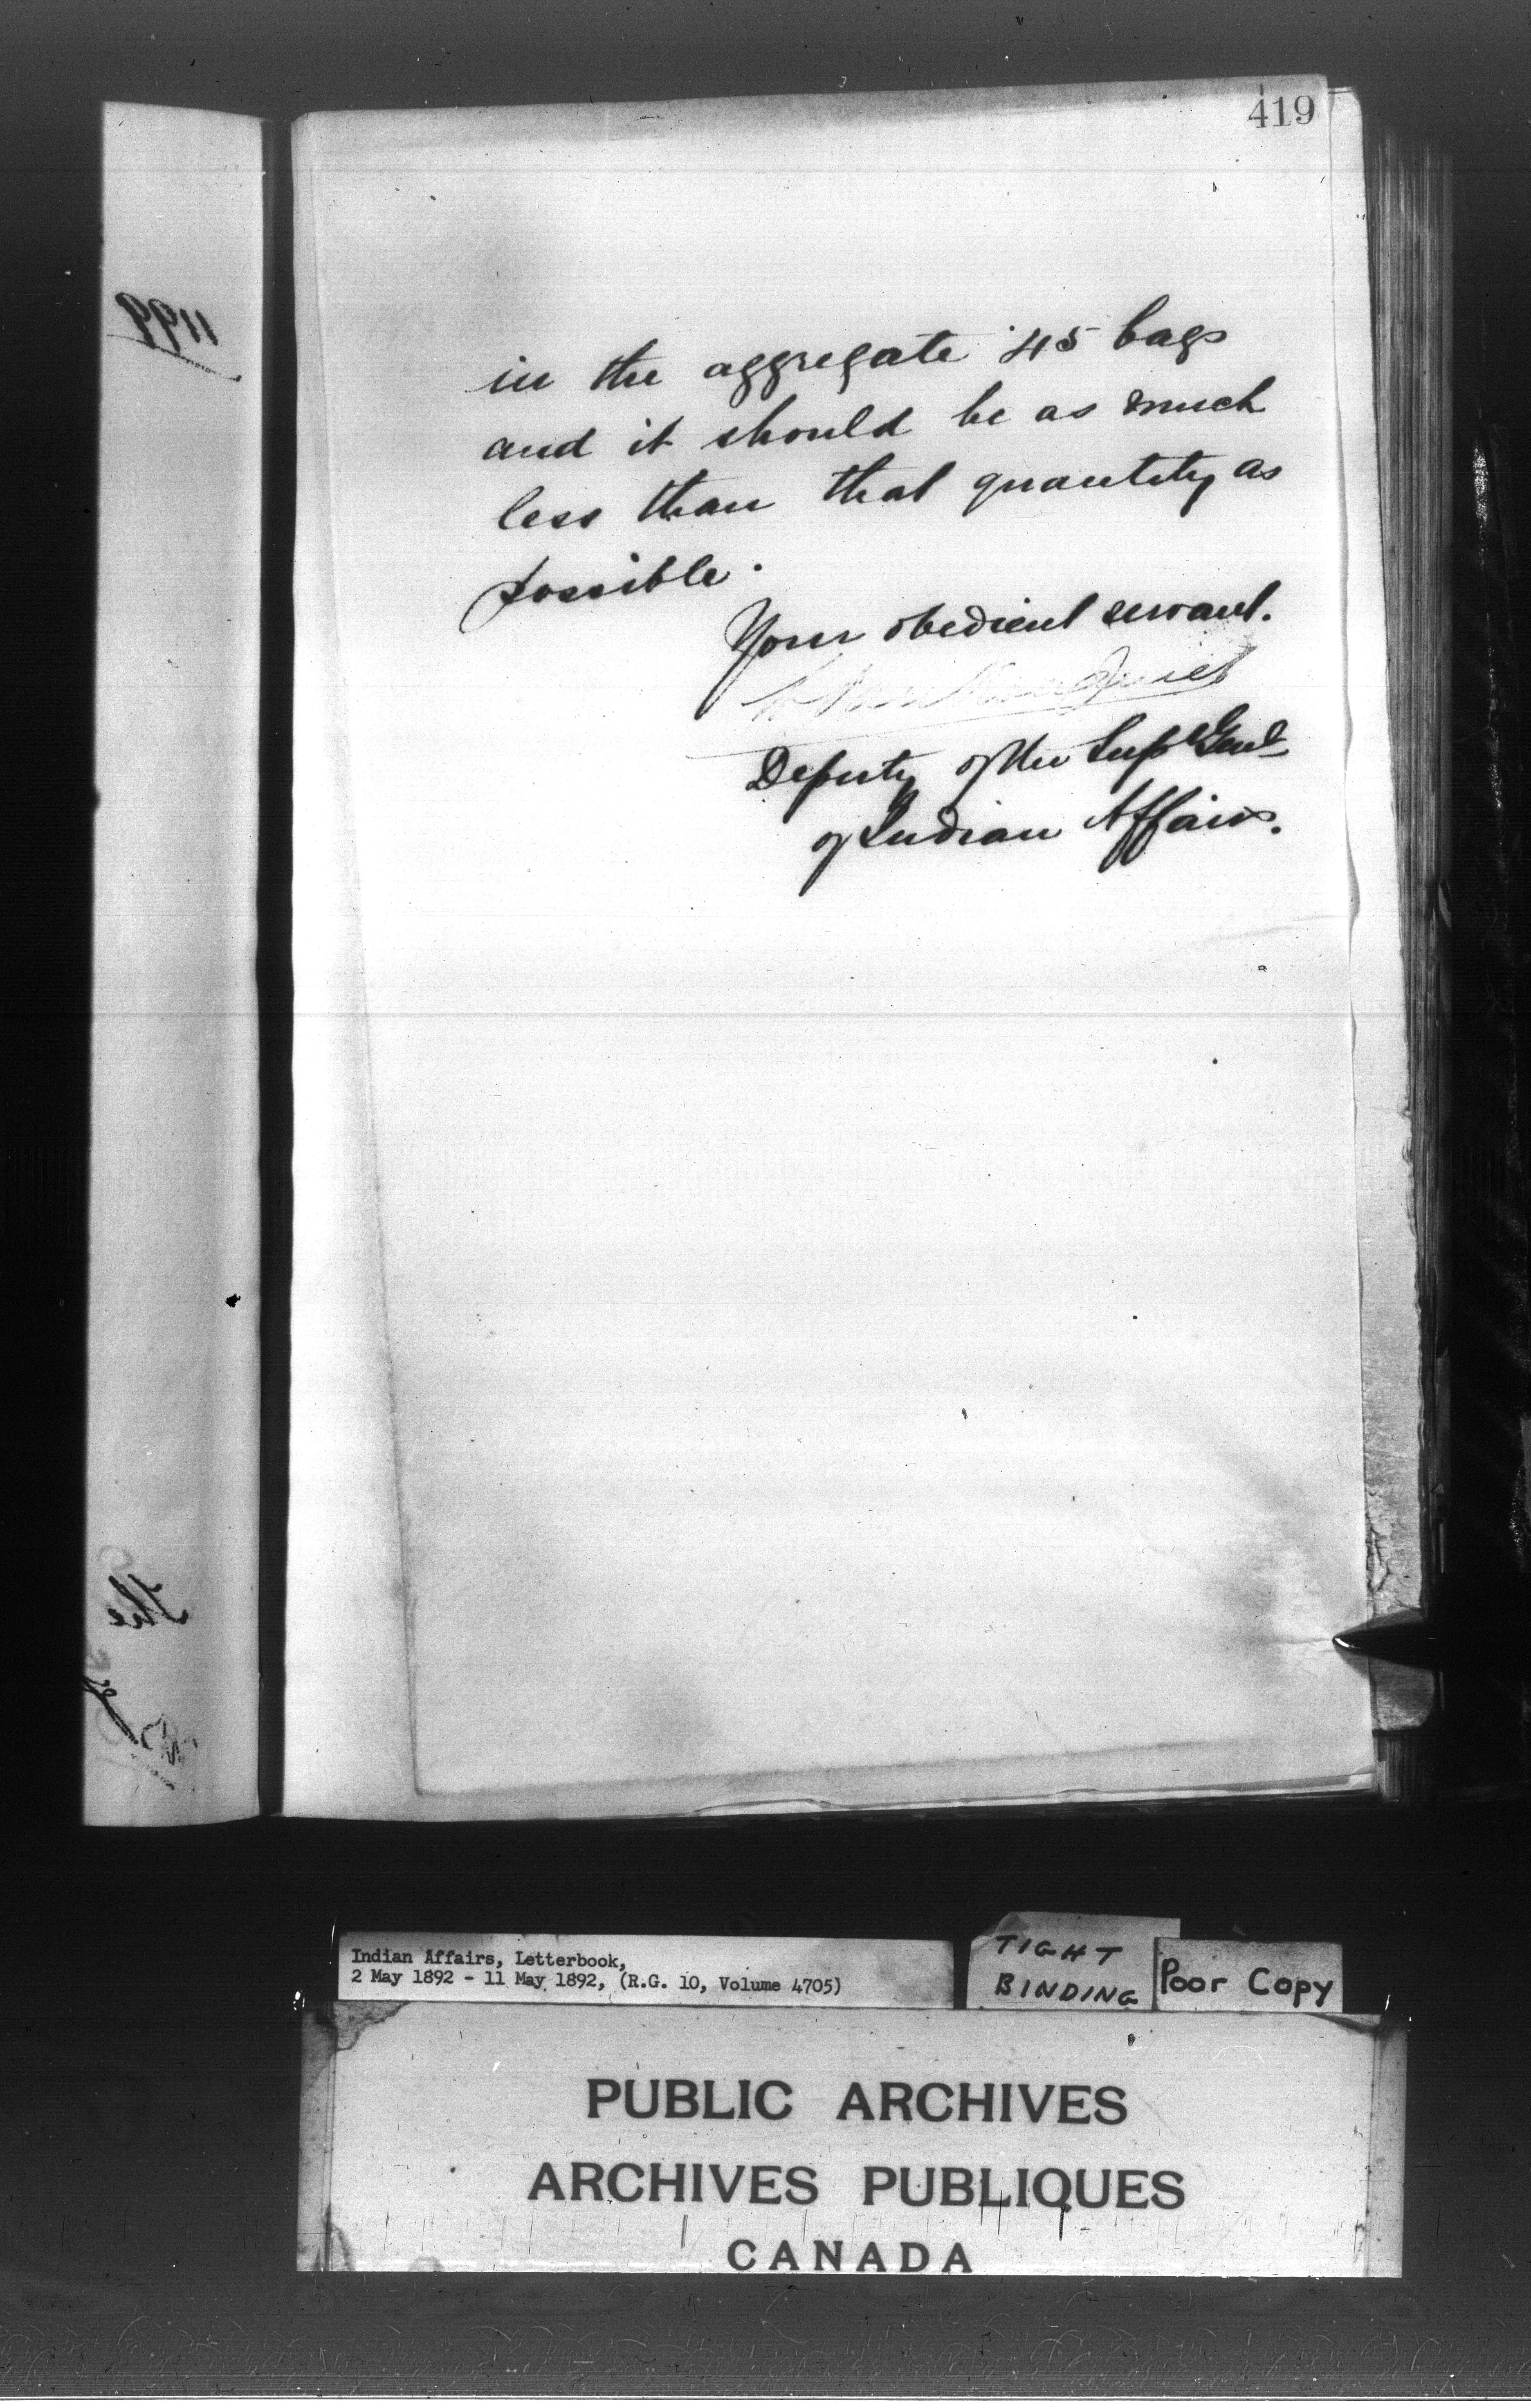 419
in the aggregate 45 bags
and it should be as much
less than that quantity as
possible.
Your obedient servant.
L Vankoughnet
Deputy of the Supt Genl
of Indian Affairs.
1199
The
Indian Affairs, Letterbook,
2 May 1892 - 11 May 1892, (R.G. 10, Volume 4705)
TIGHT
BINDING
Poor Copy
PUBLIC ARCHIVES
ARCHIVES PUBLIQUES
CANADA